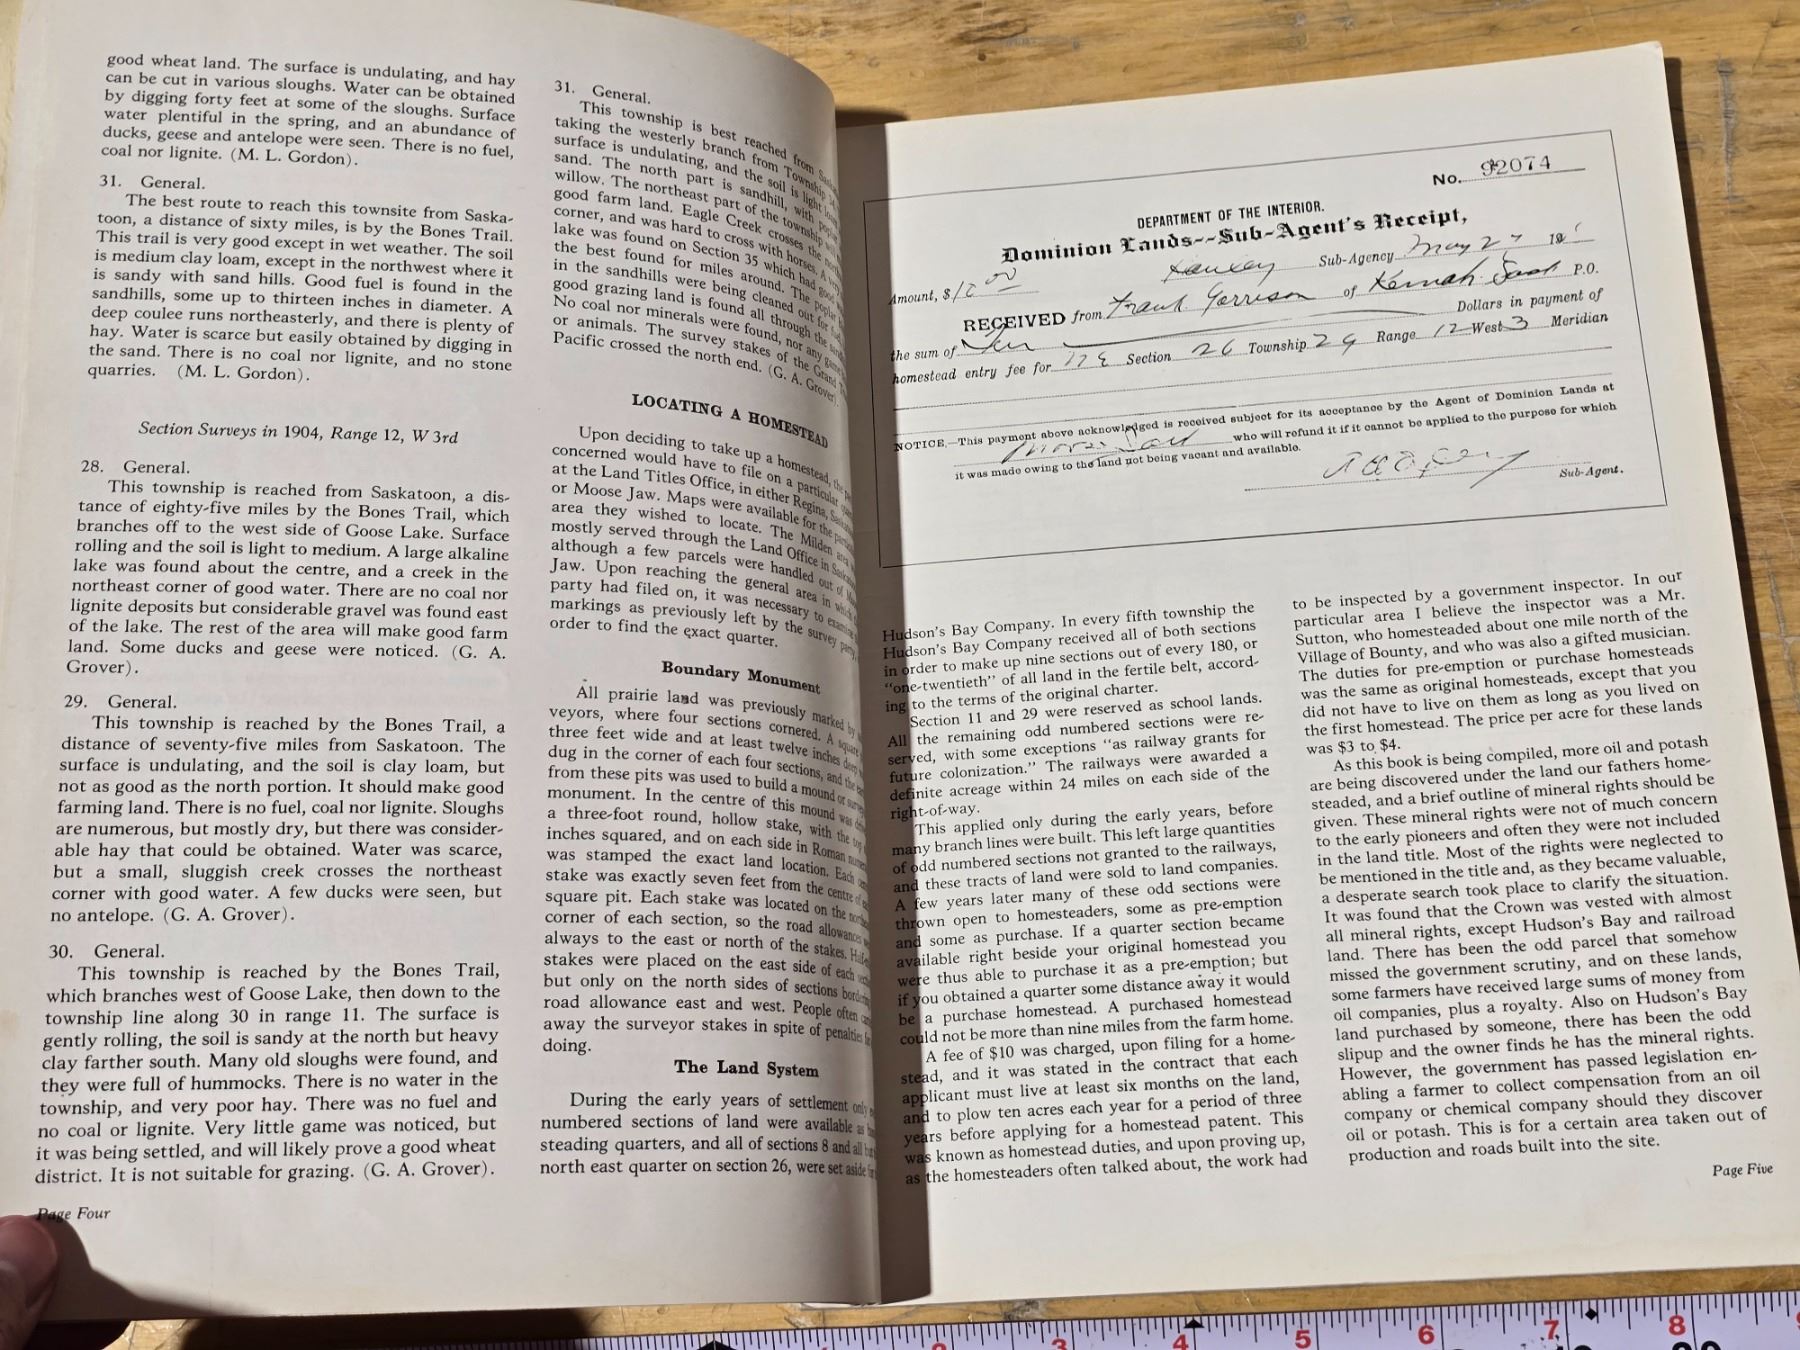 good wheat land. The surface is undulating, and hay
can be cut in various sloughs. Water can be obtained
by digging forty feet at some of the sloughs. Surface
water plentiful in the spring, and an abundance of
ducks, geese and antelope were seen. There is no fuel,
coal nor lignite. (M. L. Gordon).
31. General.
The best route to reach this townsite from Saska-
toon, a distance of sixty miles, is by the Bones Trail.
This trail is very good except in wet weather. The soil
is medium clay loam, except in the northwest where it
is sandy with sand hills. Good fuel is found in the
sandhills, some up to thirteen inches in diameter. A
deep coulee runs northeasterly, and there is plenty of
hay. Water is scarce but easily obtained by digging in
the sand. There is no coal nor lignite, and no stone
quarries. (M. L. Gordon).
Section Surveys in 1904, Range 12, W 3rd
28. General.
This township is reached from Saskatoon, a dis-
tance of eighty-five miles by the Bones Trail, which
branches off to the west side of Goose Lake. Surface
rolling and the soil is light to medium. A large alkaline
lake was found about the centre, and a creek in the
northeast corner of good water. There are no coal nor
lignite deposits but considerable gravel was found east
of the lake. The rest of the area will make good farm
land. Some ducks and geese were noticed. (G. A.
Grover).
29. General.
This township is reached by the Bones Trail, a
distance of seventy-five miles from Saskatoon. The
surface is undulating, and the soil is clay loam, but
not as good as the north portion. It should make good
farming land. There is no fuel, coal nor lignite. Sloughs
are numerous, but mostly dry, but there was consider-
able hay that could be obtained. Water was scarce,
but a small, sluggish creek crosses the northeast
corner with good water. A few ducks were seen, but
no antelope. (G. A. Grover).
30. General.
This township is reached by the Bones Trail,
which branches west of Goose Lake, then down to the
township line along 30 in range 11. The surface is
gently rolling, the soil is sandy at the north but heavy
clay farther south. Many old sloughs were found, and
they were full of hummocks. There is no water in the
township, and very poor hay. There was no fuel and
no coal or lignite. Very little game was noticed, but
it was being settled, and will likely prove a good wheat
district. It is not suitable for grazing. (G. A. Grover).
Page Four
31. General.
This township is best reached from
taking the westerly branch from Township
surface is undulating, and the soil is light
sand. The north part is sandhill, with
willow. The northeast part of the township
good farm land. Eagle Creek crosses the
corner, and was hard to cross with horses. A
lake was found on Section 35 which had good
the best for miles around. The poplar
in the sandhills were being cleaned out for
good grazing land is found all through the
No coal nor minerals were found, nor any game
or animals. The survey stakes of the Grand
Pacific crossed the north end. (G. A. Grover).
LOCATING A HOMESTEAD
Upon deciding to take up a homestead, the
concerned would have to file on a particular
at the Land Titles Office, in either Regina,
or Moose Jaw. Maps were available for the
area they wished to locate. The Milden area
mostly served through the Land Office in
although a few parcels were handled out of
Jaw. Upon reaching the general area in which
party had filed on, it was necessary to examine
markings as previously left by the survey party,
order to find the exact quarter.
Boundary Monument
All prairie land was previously marked by
veyors, where four sections cornered. A square
three feet wide and at least twelve inches deep
dug in the corner of each four sections, and the
from these pits was used to build a mound or
monument. In the centre of this mound was
a three-foot round, hollow stake, with the top
inches squared, and on each side in Roman
was stamped the exact land location. Each
stake was exactly seven feet from the centre of
square pit. Each stake was located on the
corner of each section, so the road allowances
always to the east or north of the stakes.
stakes were placed on the east side of each
but only on the north sides of sections
road allowance east and west. People often
away the surveyor stakes in spite of penalties
doing.
The Land System
During the early years of settlement only
numbered sections of land were available as
steading quarters, and all of sections 8 and all
north east quarter on section 26, were set aside
No. 92074
DEPARTMENT OF THE INTERIOR.
Dominion Lands--Sub-Agent's Receipt,
Sub-Agency May 27
Amount, $
RECEIVED from Frank Garrison of Sask P.O.
the sum of Ten Dollars in payment of
homestead entry fee for N E Section 26 Township 29 Range 12 West 3 Meridian
NOTICE.—This payment above acknowledged is received subject for its acceptance by the Agent of Dominion Lands at
who will refund it if it cannot be applied to the purpose for which
it was made owing to the land not being vacant and available.
Sub-Agent.
Hudson's Bay Company. In every fifth township the
Hudson's Bay Company received all of both sections
in order to make up nine sections out of every 180, or
"one-twentieth" of all land in the fertile belt, accord-
ing to the terms of the original charter.
Section 11 and 29 were reserved as school lands.
All the remaining odd numbered sections were re-
served, with some exceptions "as railway grants for
future colonization." The railways were awarded a
definite acreage within 24 miles on each side of the
right-of-way.
This applied only during the early years, before
many branch lines were built. This left large quantities
of odd numbered sections not granted to the railways,
and these tracts of land were sold to land companies.
A few years later many of these odd sections were
thrown open to homesteaders, some as pre-emption
and some as purchase. If a quarter section became
available right beside your original homestead you
were thus able to purchase it as a pre-emption; but
if you obtained a quarter some distance away it would
be a purchase homestead. A purchased homestead
could not be more than nine miles from the farm home.
A fee of $10 was charged, upon filing for a home-
stead, and it was stated in the contract that each
applicant must live at least six months on the land,
and to plow ten acres each year for a period of three
years before applying for a homestead patent. This
was known as homestead duties, and upon proving up,
as the homesteaders often talked about, the work had
to be inspected by a government inspector. In our
particular area I believe the inspector was a Mr.
Sutton, who homesteaded about one mile north of the
Village of Bounty, and who was also a gifted musician.
The duties for pre-emption or purchase homesteads
was the same as original homesteads, except that you
did not have to live on them as long as you lived on
the first homestead. The price per acre for these lands
was $3 to $4.
As this book is being compiled, more oil and potash
are being discovered under the land our fathers home-
steaded, and a brief outline of mineral rights should be
given. These mineral rights were not of much concern
to the early pioneers and often they were not included
in the land title. Most of the rights were neglected to
be mentioned in the title and, as they became valuable,
a desperate search took place to clarify the situation.
It was found that the Crown was vested with almost
all mineral rights, except Hudson's Bay and railroad
land. There has been the odd parcel that somehow
missed the government scrutiny, and on these lands,
some farmers have received large sums of money from
oil companies, plus a royalty. Also on Hudson's Bay
land purchased by someone, there has been the odd
slipup and the owner finds he has the mineral rights.
However, the government has passed legislation en-
abling a farmer to collect compensation from an oil
company or chemical company should they discover
oil or potash. This is for a certain area taken out of
production and roads built into the site.
Page Five
4 5 6 7 8